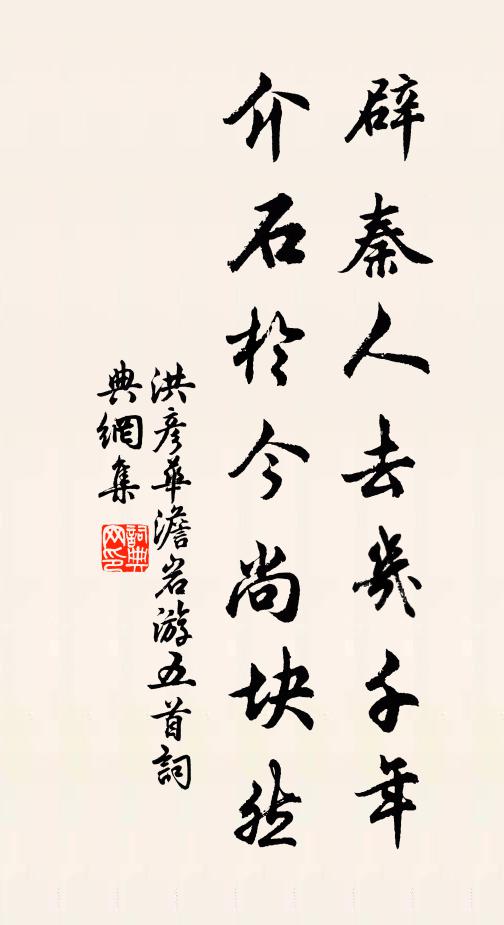 辟秦人去几千年
介石於今尚块然
洪彦华澹岩游五首詞
典網集
詞典网印